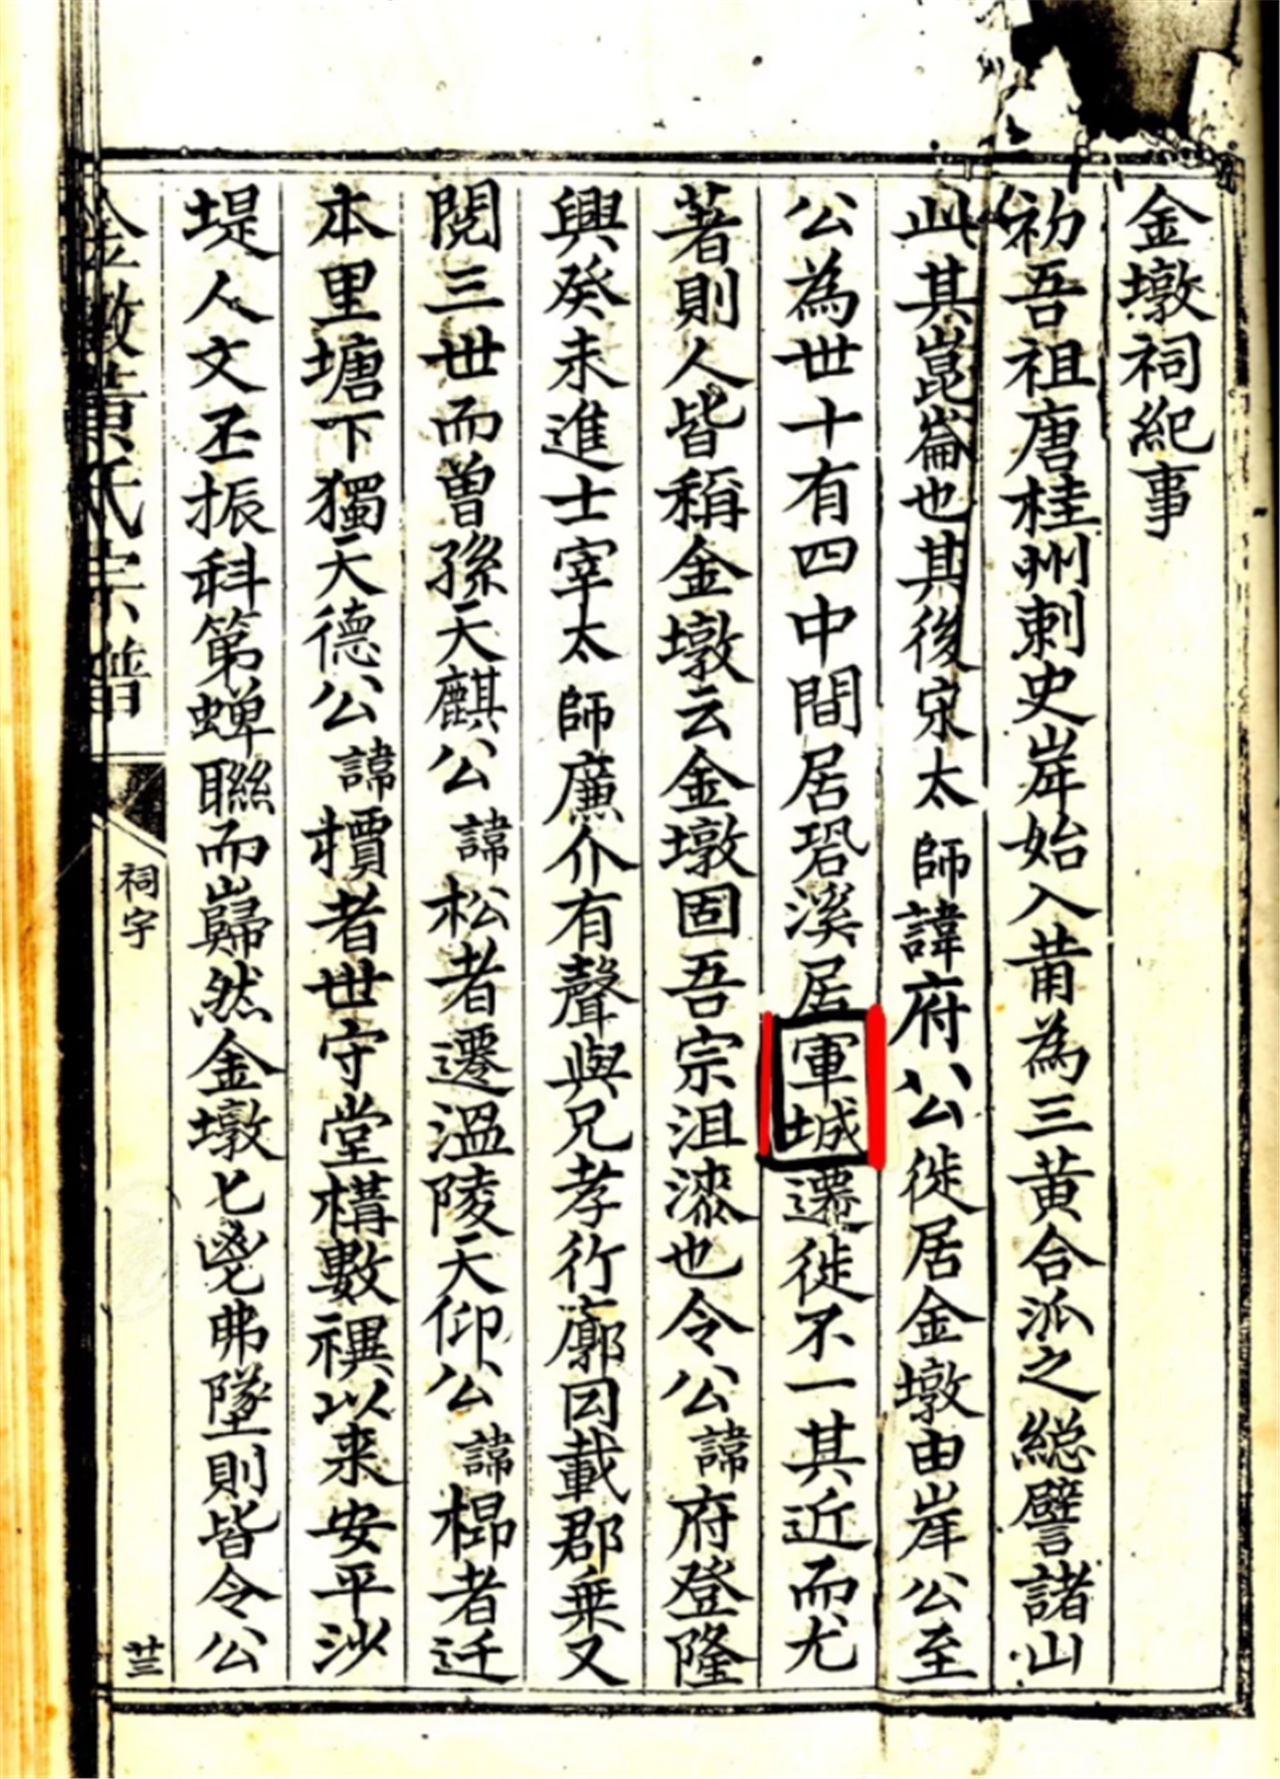 金墩祠紀事
初吾祖唐桂州刺史岸始入莆為三黄合派之総譬諸山
此其崑崙也其後宋太師諱府公徙居金墩由岸公至
公為世十有四中間居硓溪居軍城遷徙不一其近而尤
著則人皆稱金墩云金墩固吾宗沮漆也令公諱府登隆
興癸未進士宰太師廉介有聲與兄孝行廓因載郡乗又
閲三世而曽孫天麒公諱松者遷温陵天仰公諱棉者迁
本里塘下獨天德公諱櫝者世守堂構數禩以来安平沙
堤人文丕振科第蝉聯而巋然金墩匕鬯弗墜則皆令公
金墩黄氏宗譜
祠宇
廿三